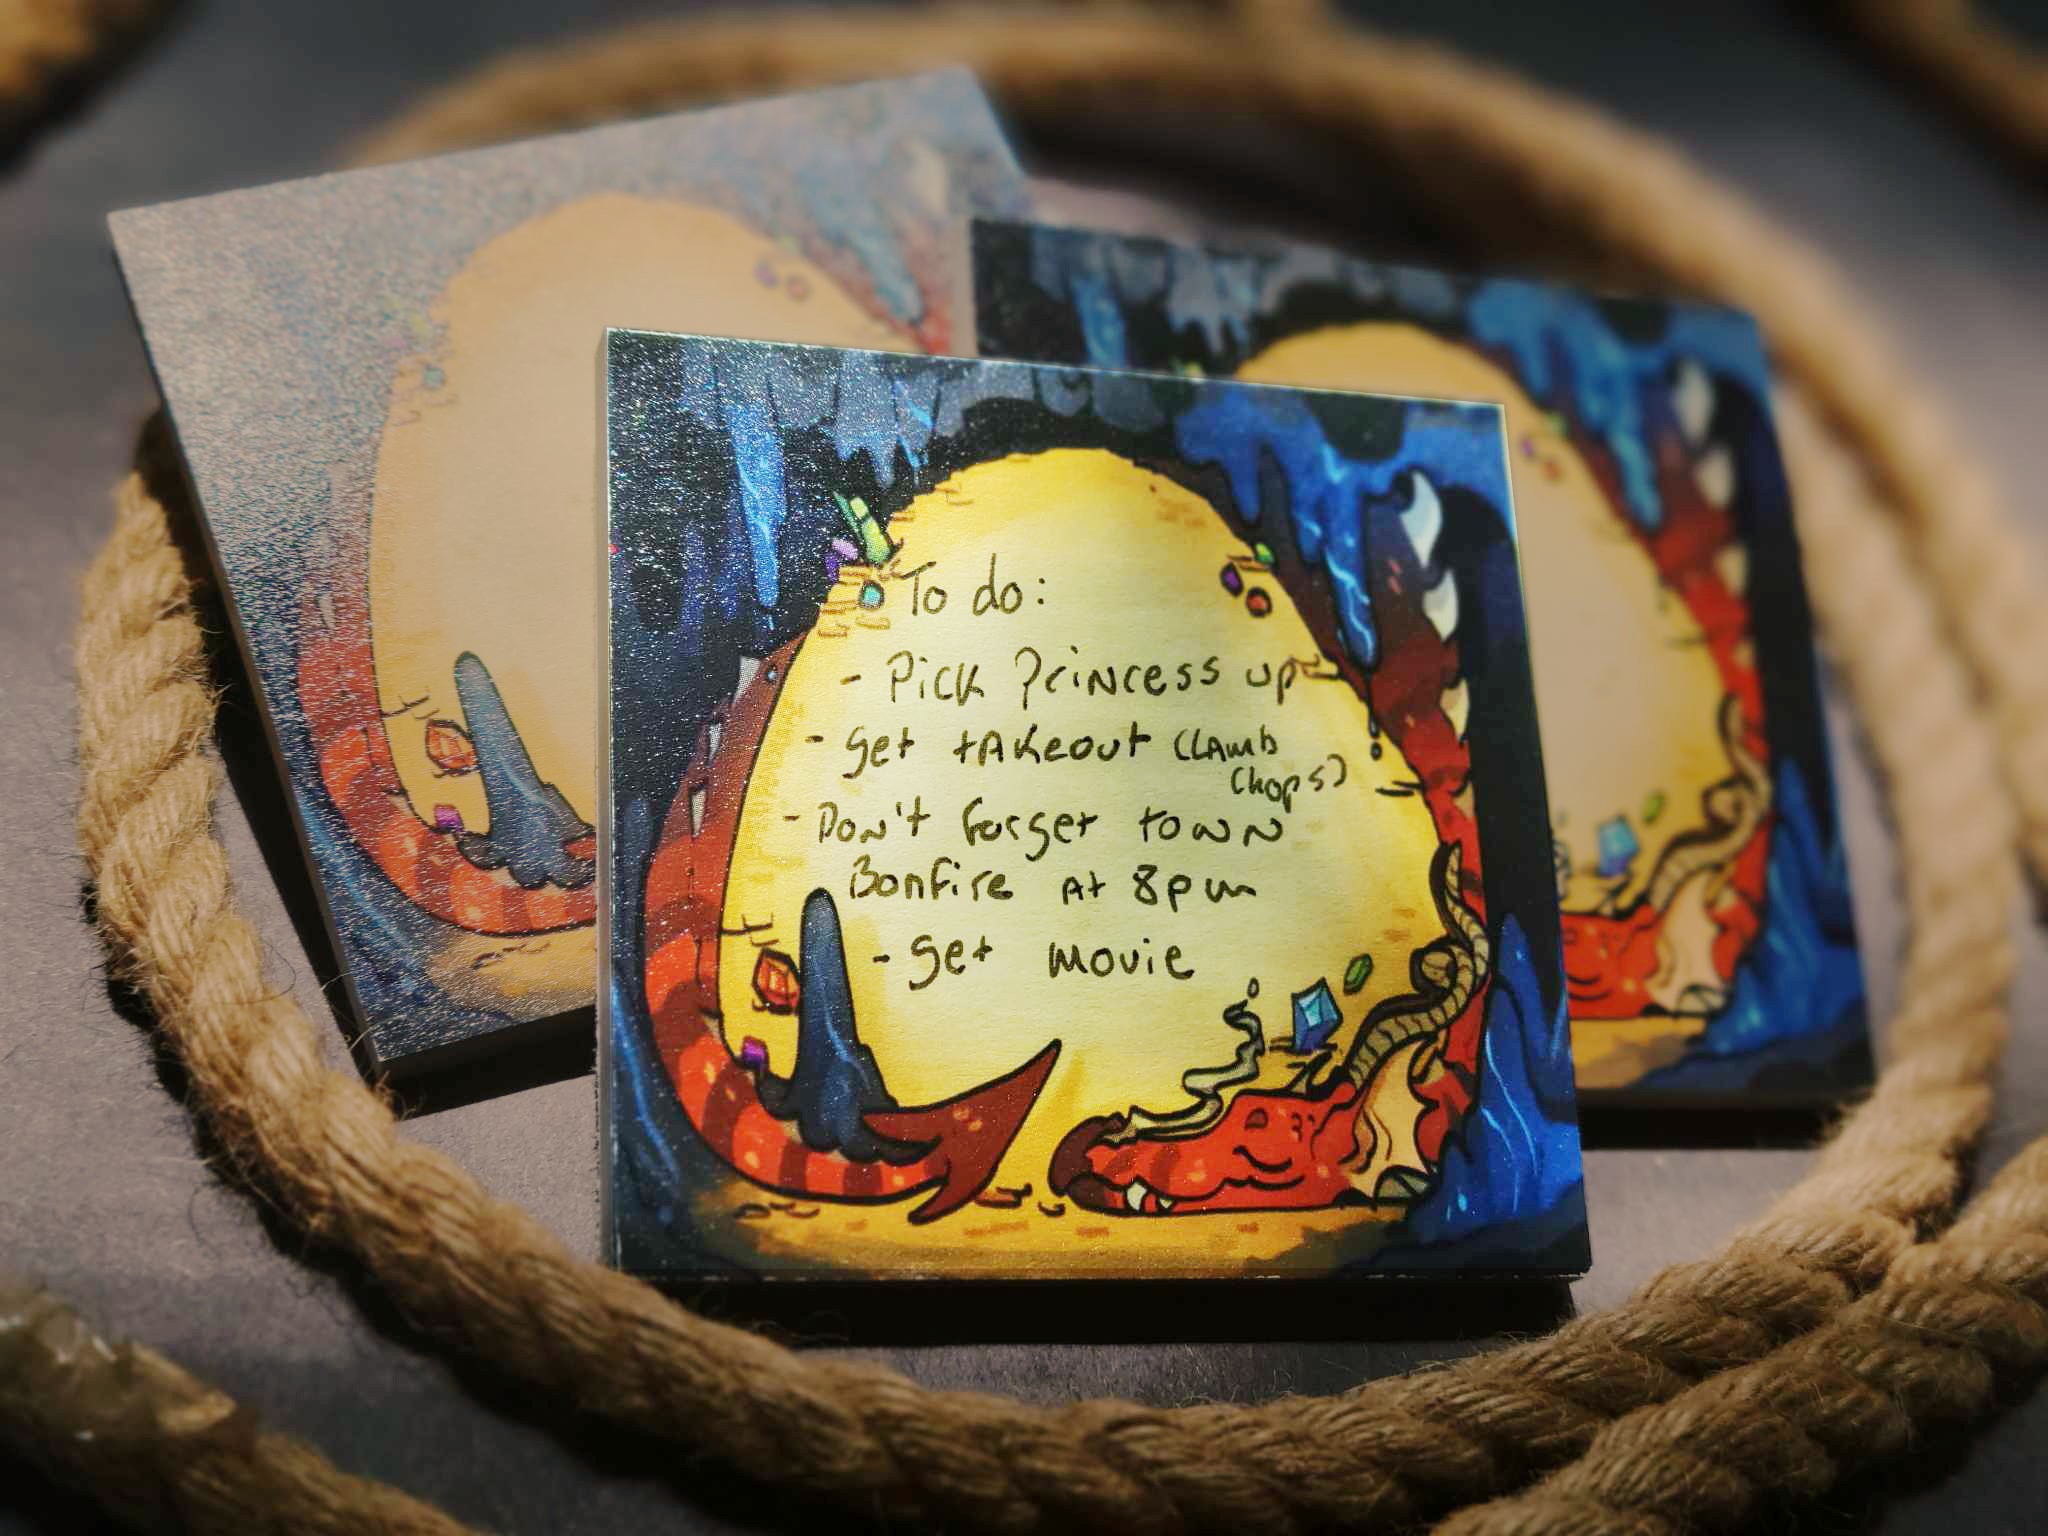 To do:
- Pick Princess up
- get takeout (Lamb
Chops)
- Don't forget town
Bonfire at 8pm
- get movie